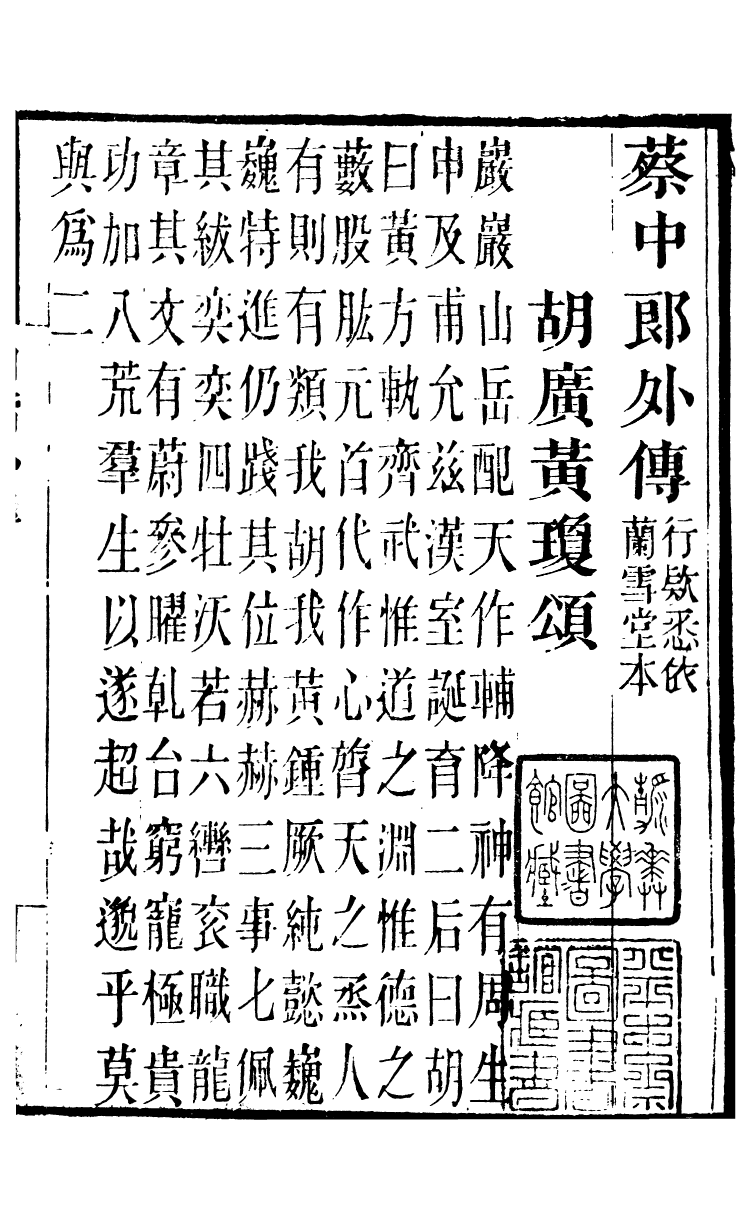 蔡中郎外傳
行欵悉依
蘭雪堂本
胡廣黃瓊頌
巖巖山岳配天作輔降神有周生
申及甫允兹漢室誕育二后曰胡
曰黃方軌齊武惟道之淵惟德之
藪股肱元首代作心膂天之烝人
有則有類我胡我黃鍾厥純懿巍
巍特進仍踐其位赫赫三事七佩
其紱奕奕四牡沃若六轡衮職龍
章其文有蔚參曜乹台窮寵極貴
功加八荒羣生以遂超哉邈乎莫
與爲二
大學
圖書
館藏